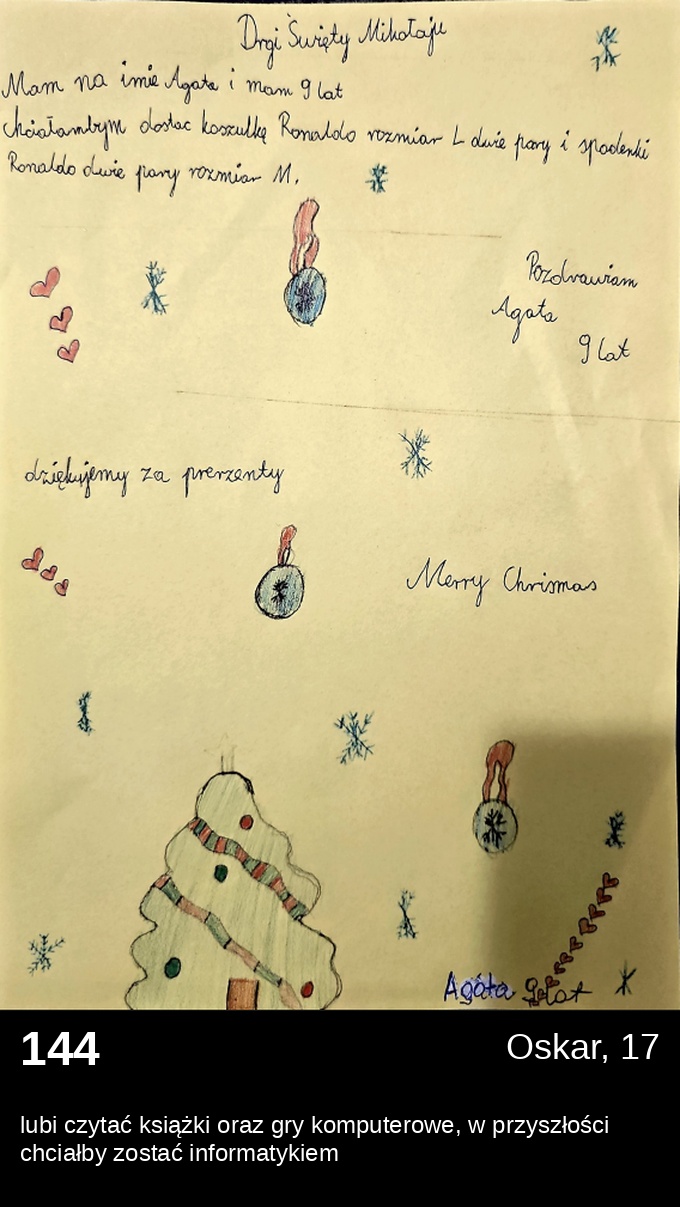 Drgi Święty Mikołaju
Mam na imie Agata i mam 9 lat
chciałambym dostac koszulkę Ronaldo rozmiar L dwie pary i spodenki
Ronaldo dwie pary rozmiar M.
Pozdrawiam
Agata
9 lat
dziękujemy za prerzenty
Merry Chrismas
Agata 9 lat
144
Oskar, 17
lubi czytać książki oraz gry komputerowe, w przyszłości
chciałby zostać informatykiem